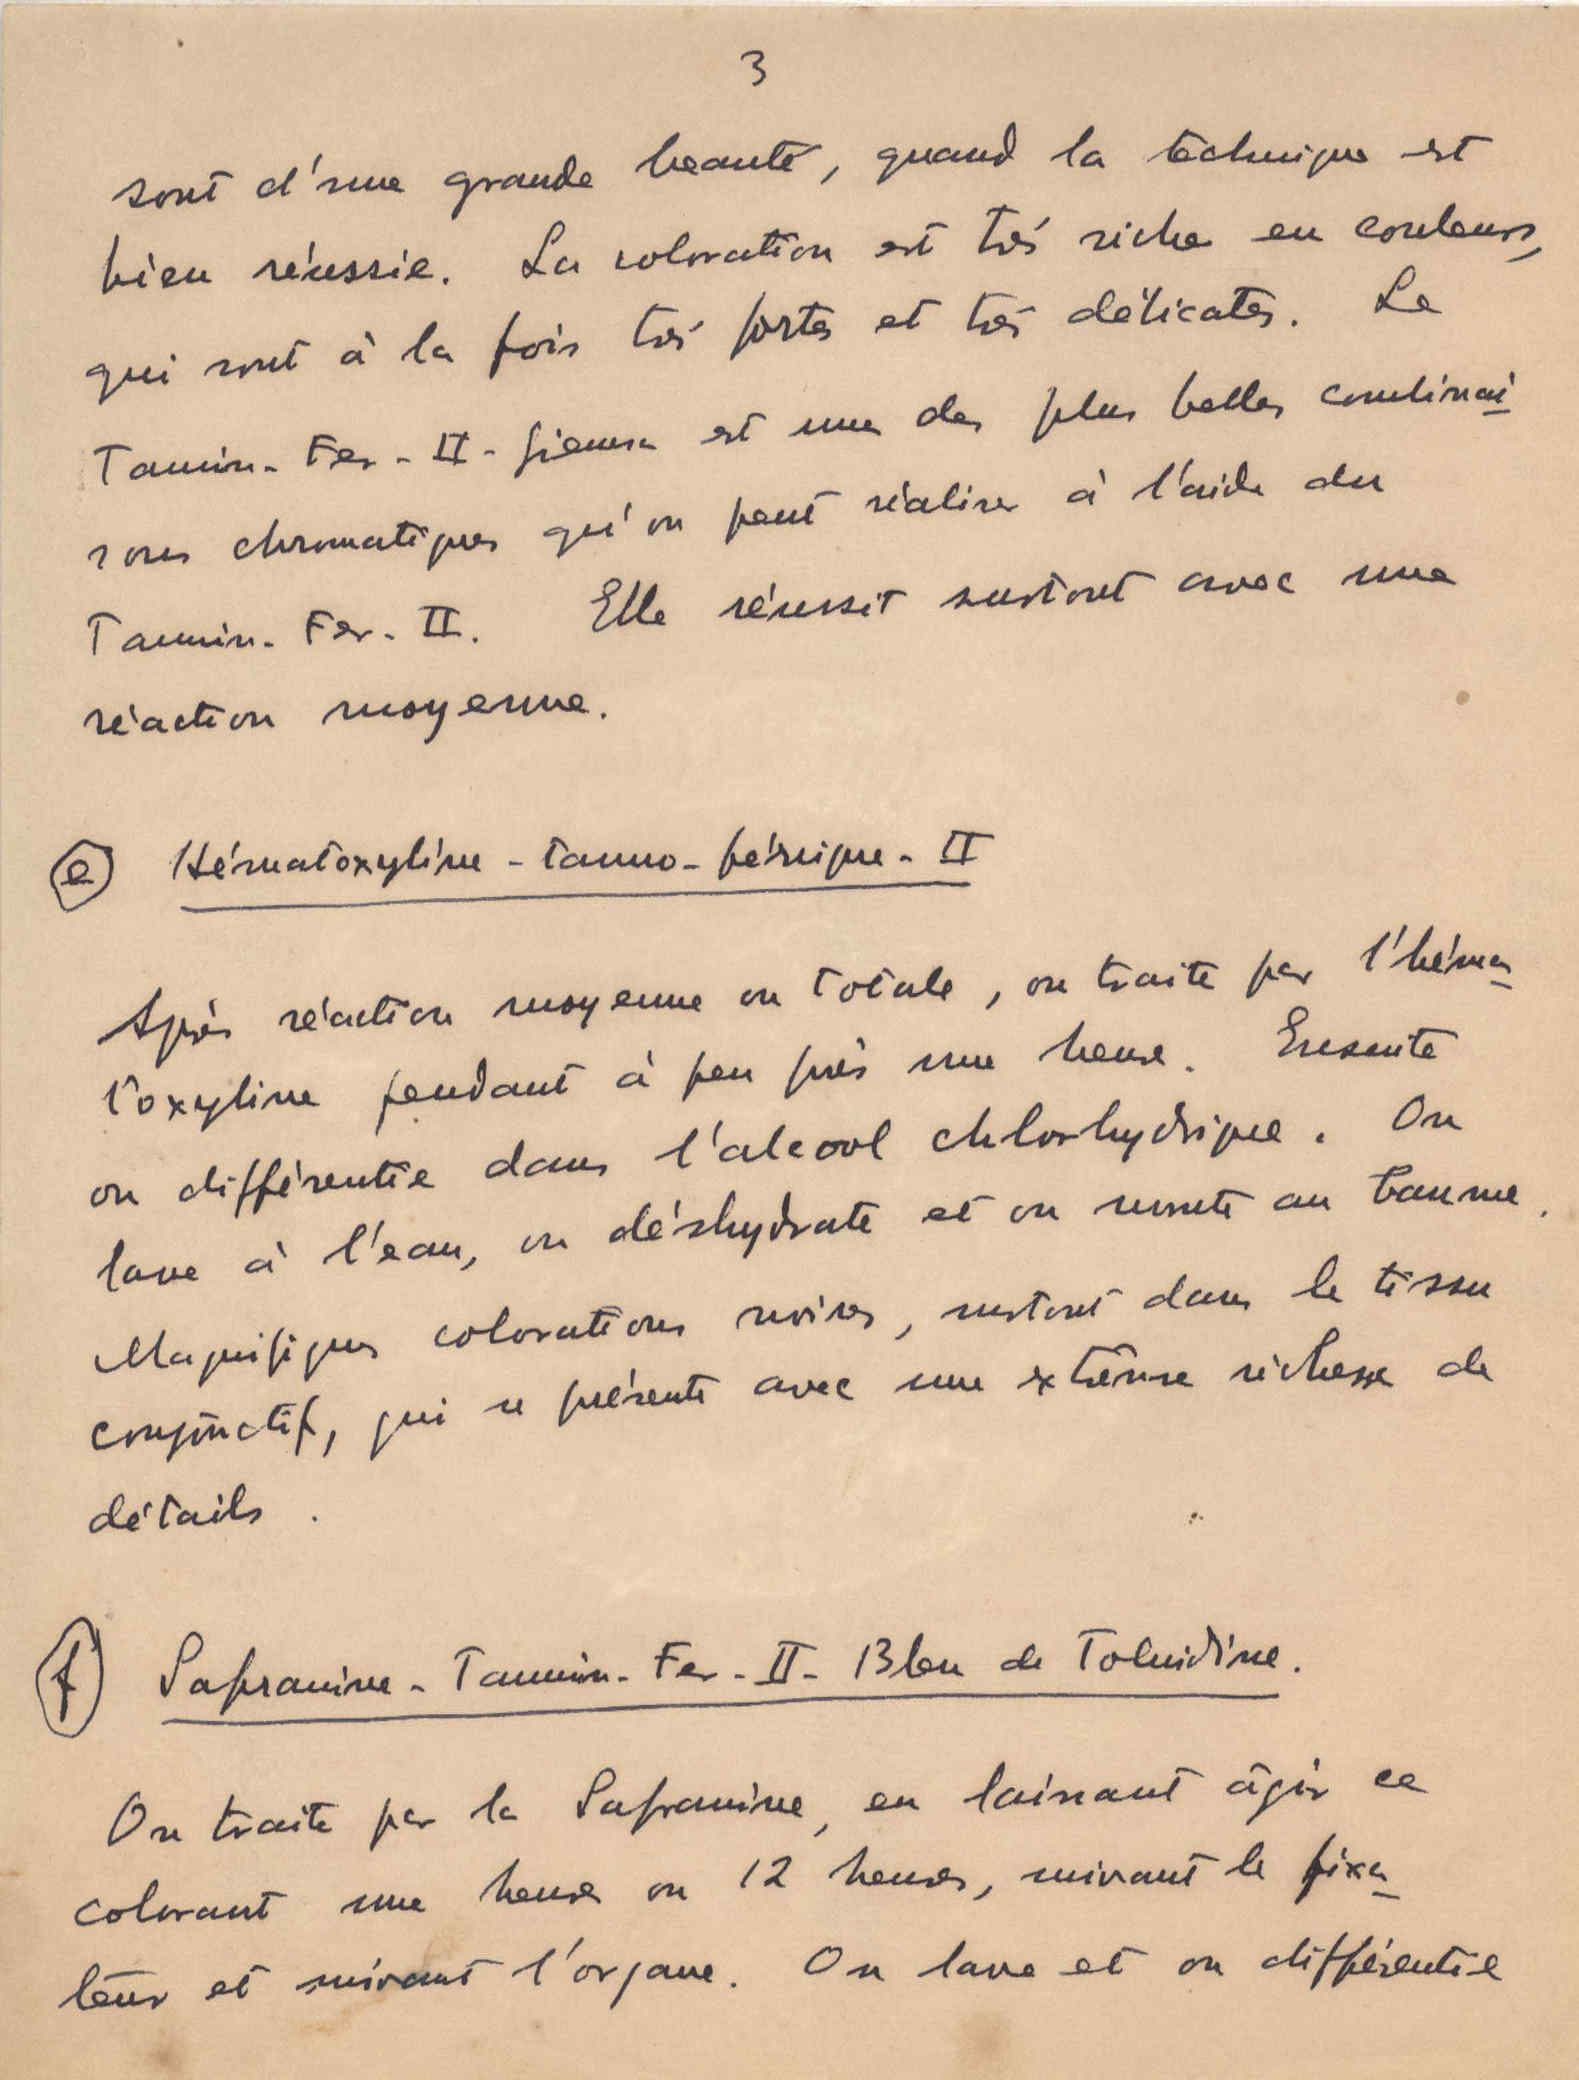 3
sont d'une grande beauté, quand la technique est
bien réussie. La coloration est très riche en couleurs,
qui sont à la fois très fortes et très délicates. Le
Tannin-Fer-II-Giemsa est une des plus belles combinai-
sons chromatiques qu'on peut réaliser à l'aide du
Tannin-Fer-II. Elle réussit surtout avec une
réaction moyenne.
e Hématoxyline-tanno-férrique-II
Après réaction moyenne ou totale, on traite par l'héma-
toxyline pendant à peu près une heure. Ensuite
on différentie dans l'alcool chlorhydrique. On
lave à l'eau, on déshydrate et on monte au baume.
Magnifiques colorations noires, surtout dans le tissu
conjonctif, qui se présente avec une extrême richesse de
détails.
f Safranine-Tannin-Fer-II-Bleu de Toluidine.
On traite par la Safranine, en laissant âgir ce
colorant une heure ou 12 heures, suivant le fixa-
teur et suivant l'organe. On lave et on différentie